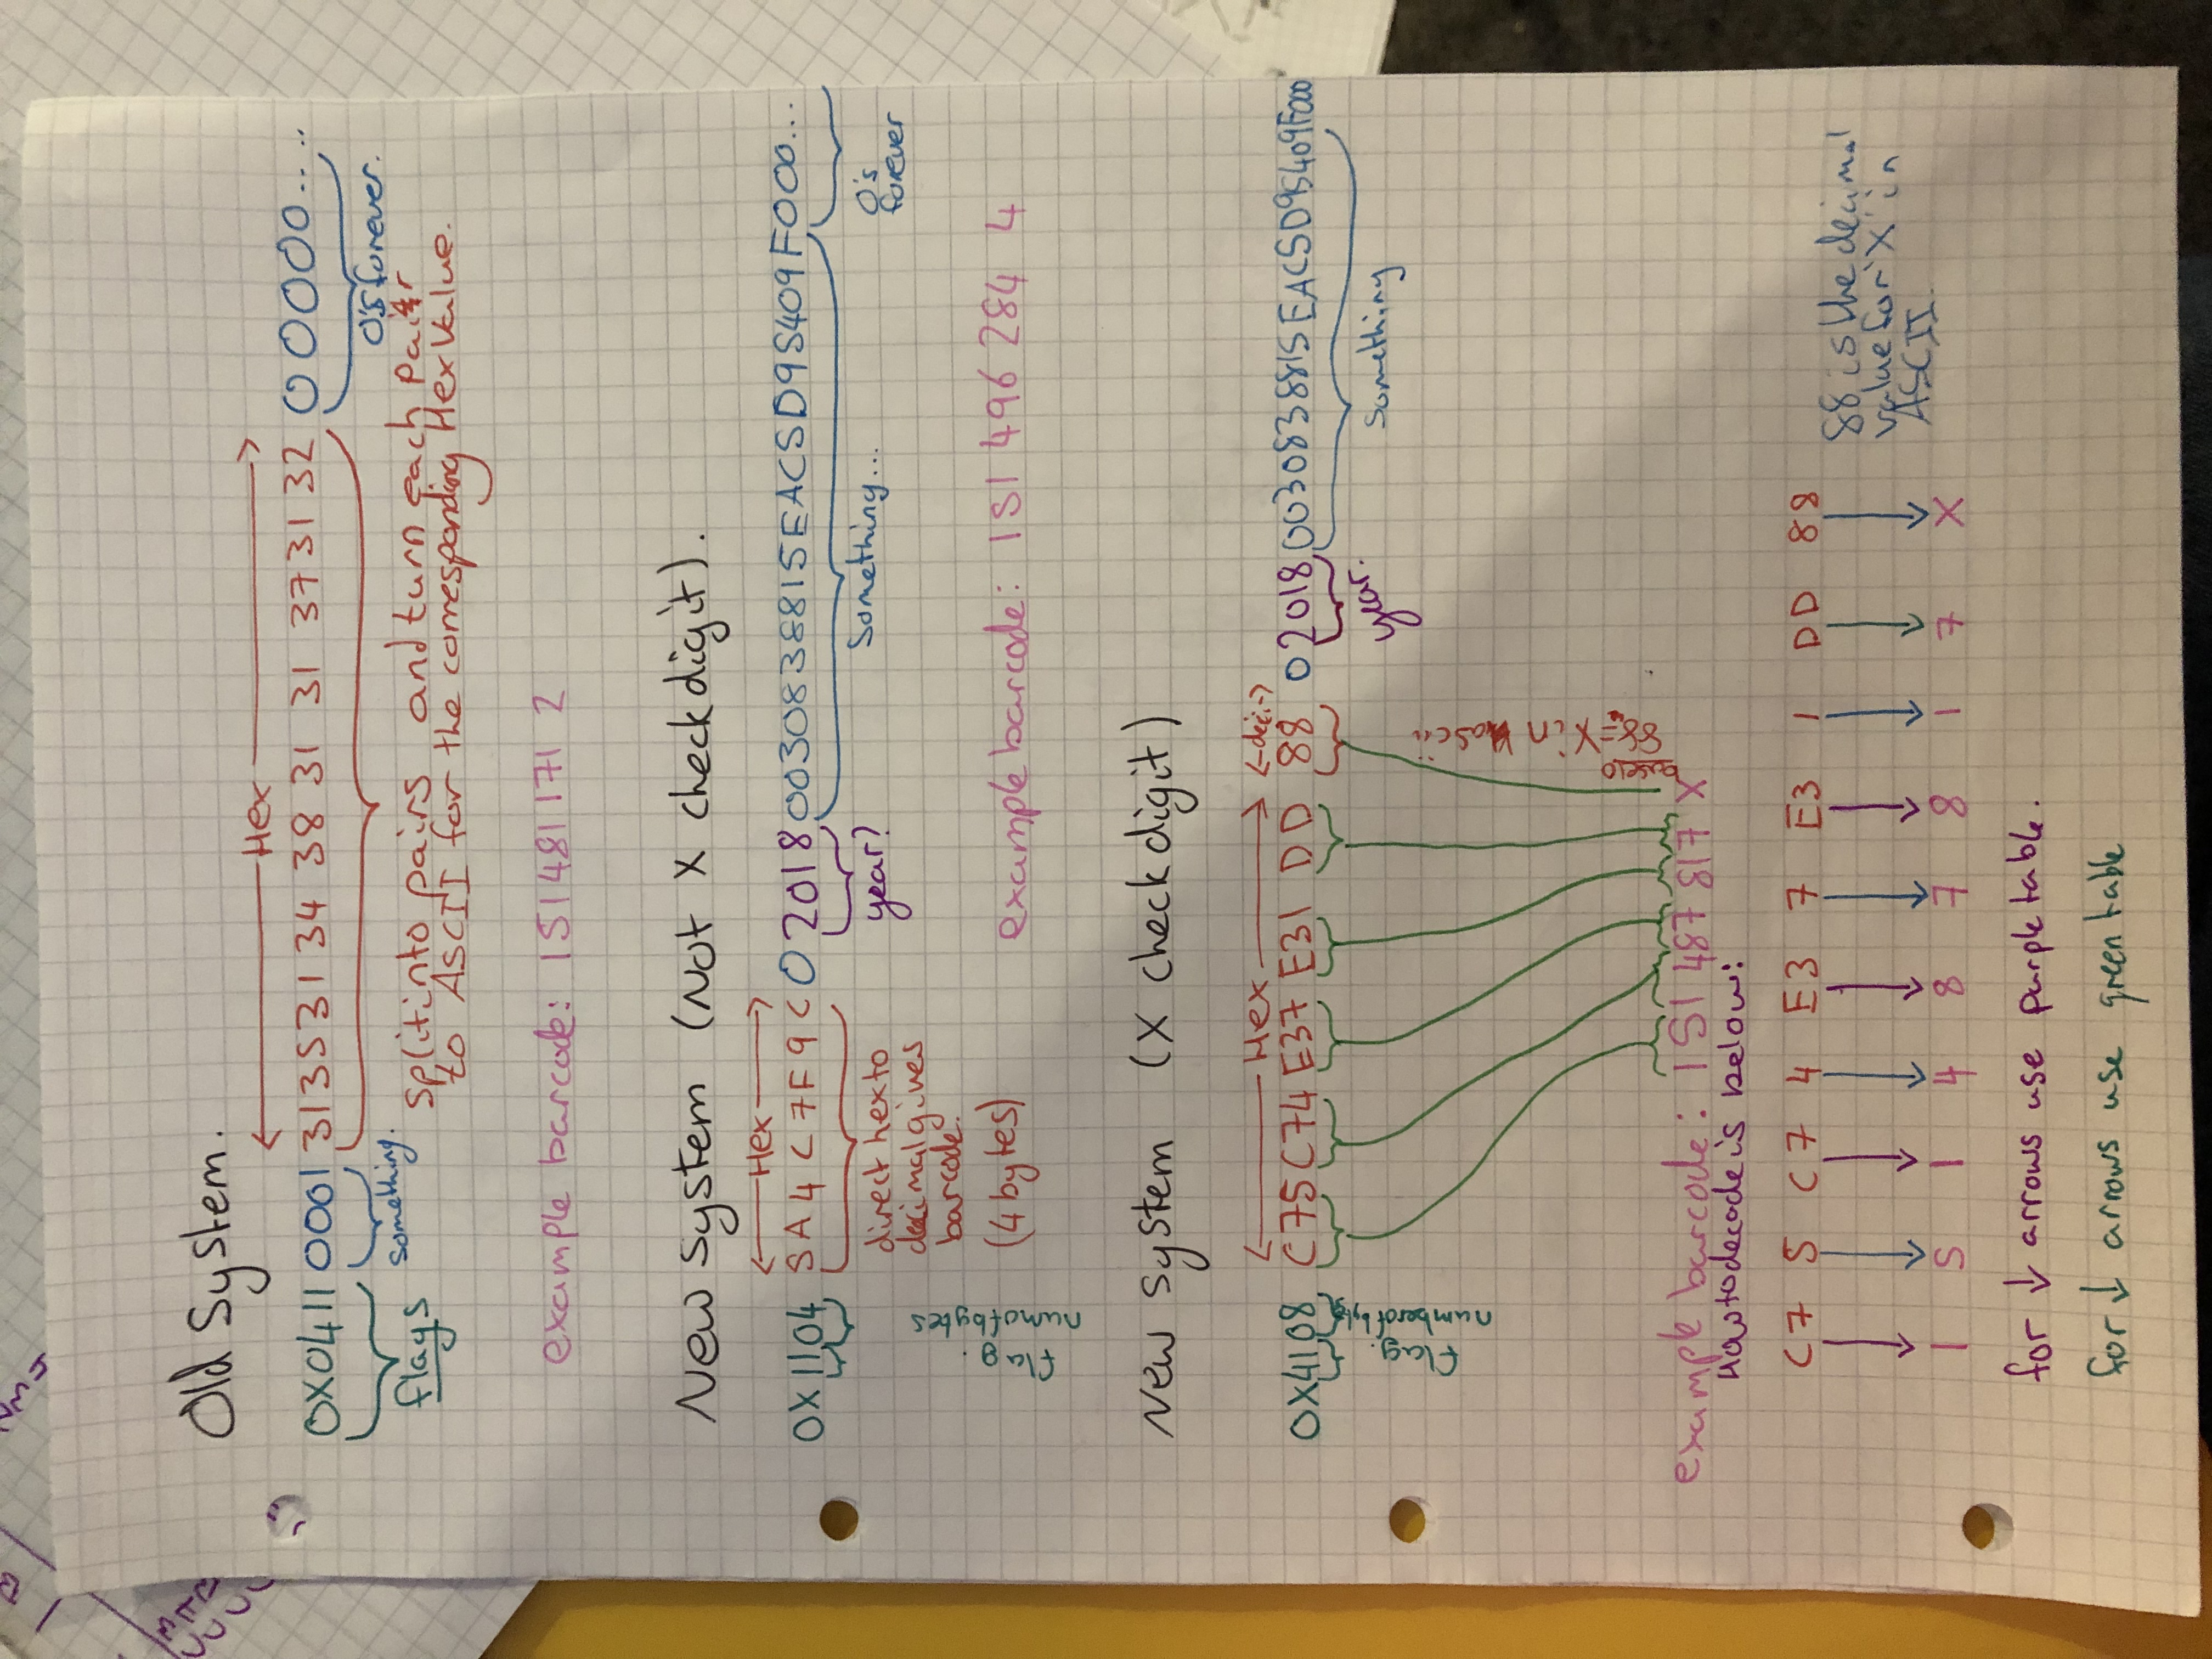 Old System.
Hex
0X0411 0001 31353134 38 31 31 37 31 32 00000.. ..
flags
something.
0's forever.
split into pairs and turn each pair
to ASCII for the corresponding Hex Value.
example barcode: 151481171 2
New system (Not X check digit).
Hex
0X1104 5A4C7F9C 0 2018 0030838815EAC5D95409F000...
flag.
num of bytes
direct hex to
decimal gives
barcode.
(4 bytes)
year?
Something...
0's
forever
example barcode: 151 496 284 4
New system (X check digit)
Hex
deci.
0X4108 C75C74 E37 E31 DD 88 0 2018 0030838815EAC5D95409F000
flag.
number of bytes
year.
Something
base10
88 = X in ascii
example barcode: 151 487 817 X
How to decode is below:
C7 5 C7 4 E3 7 E3 1 DD 88
88 is the decimal
value for 'X' in
ASCII.
1 5 1 4 8 7 8 1 7 X
for ↓ arrows use purple table.
for ↓ arrows use green table